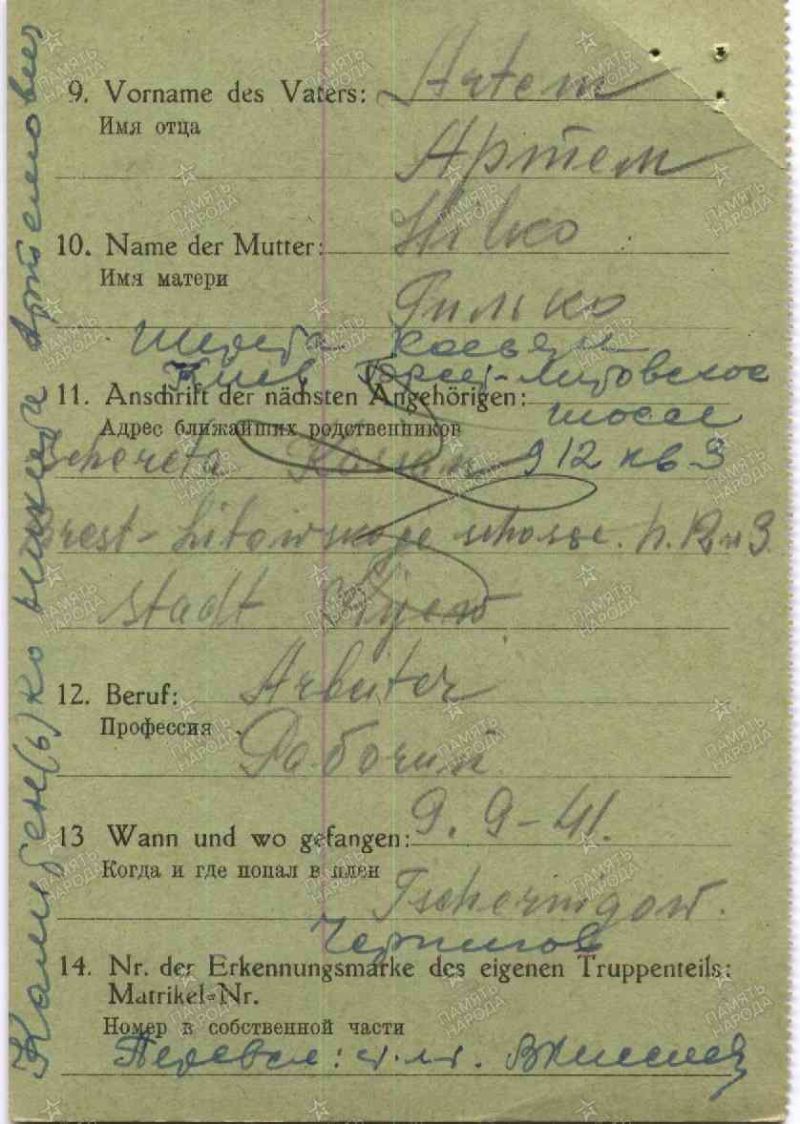 9. Vorname des Vaters: Artem
Имя отца
Артем
10. Name der Mutter: Hilko
Имя матери
Гилько
Шерета Касьян
Киев Брест-Литовское
11. Anschrift der nächsten Angehörigen:
шоссе
Адрес ближайших родственников
Schereta Kassian д 12 кв 3
Brest-Litowskoje schosse. h. 12 3
stadt Kijew
12. Beruf: Arbeiter
Профессия
Рабочий
13 Wann und wo gefangen: 9. 9-41.
Когда и где попал в плен
Tschernigow.
Чернигов
14. Nr. der Erkennungsmarke des eigenen Truppenteils:
Matrikel-Nr.
Номер в собственной части
Перевел:
Никита Артемович
ПАМЯТЬ НАРОДА